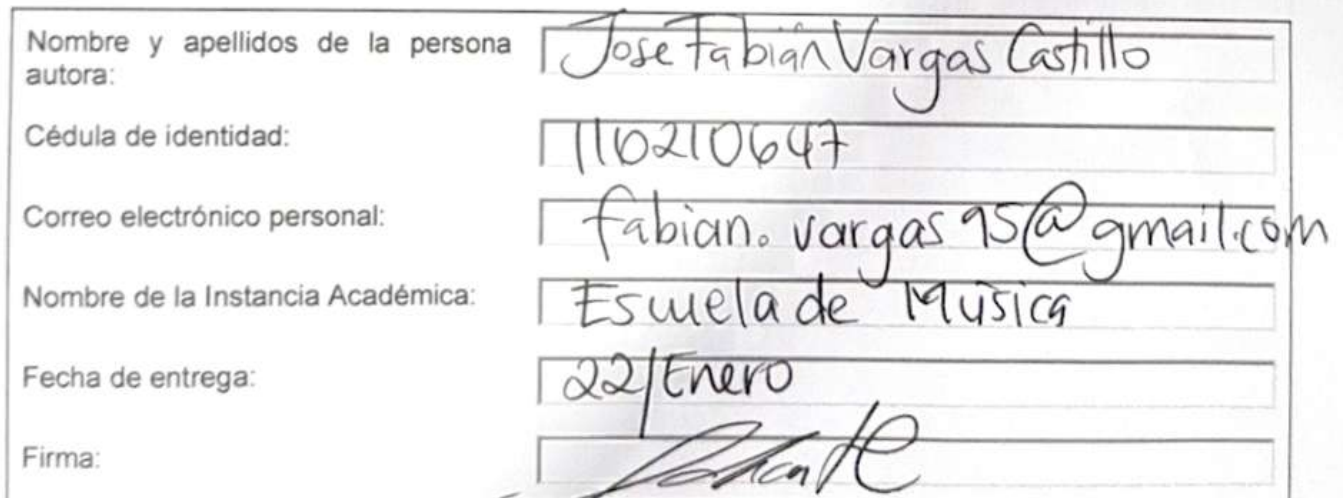 Nombre y apellidos de la persona
autora:
Jose Fabián Vargas Castillo
Cédula de identidad:
116210647
Correo electrónico personal:
fabian.vargas95@gmail.com
Nombre de la Instancia Académica:
Escuela de Música
Fecha de entrega:
22/Enero
Firma: